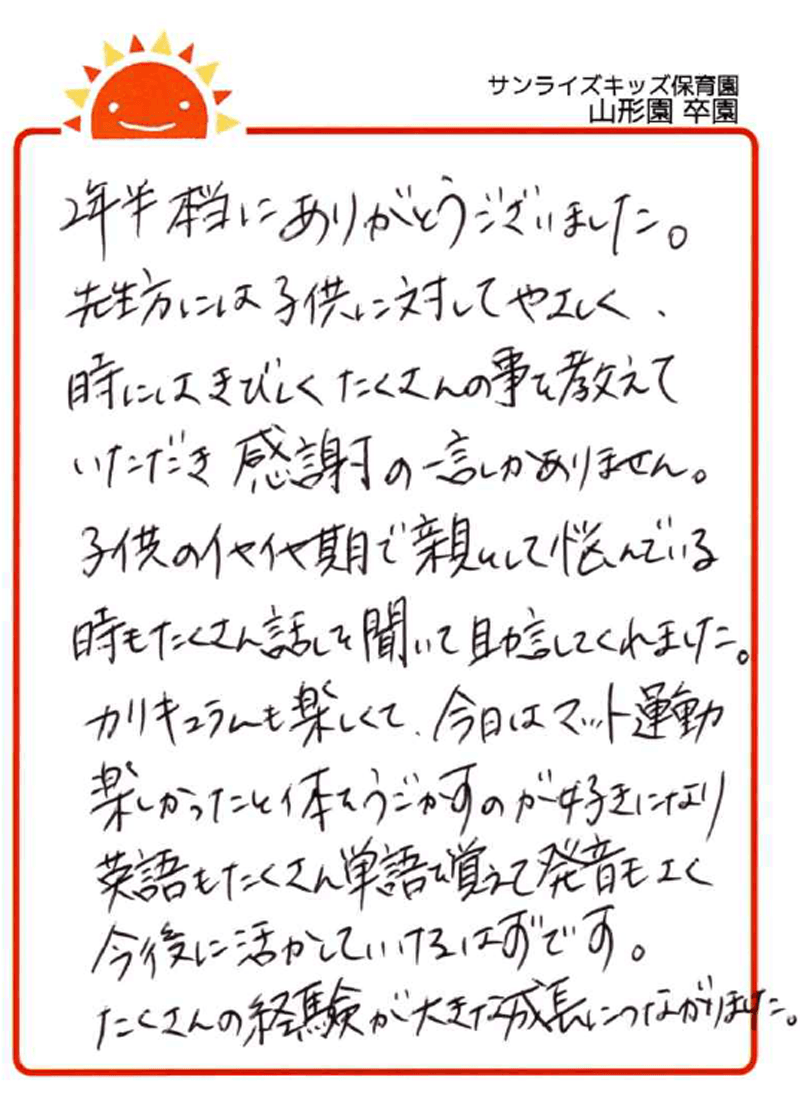 サンライズキッズ保育園
山形園 卒園
2年半 本当に ありがとうございました。
先生方には 子供に対して やさしく、
時にはきびしく たくさんの事を教えて
いただき 感謝の一言しかありません。
子供のイヤイヤ期で親として悩んでいる
時もたくさん話しを聞いて助言してくれました。
カリキュラムも楽しくて、今日はマット運動
楽しかったと体をうごかすのが好きになり
英語もたくさん単語を覚えて発音もよく
今後に活かしていけるはずです。
たくさんの経験が大きな成長につながりました。